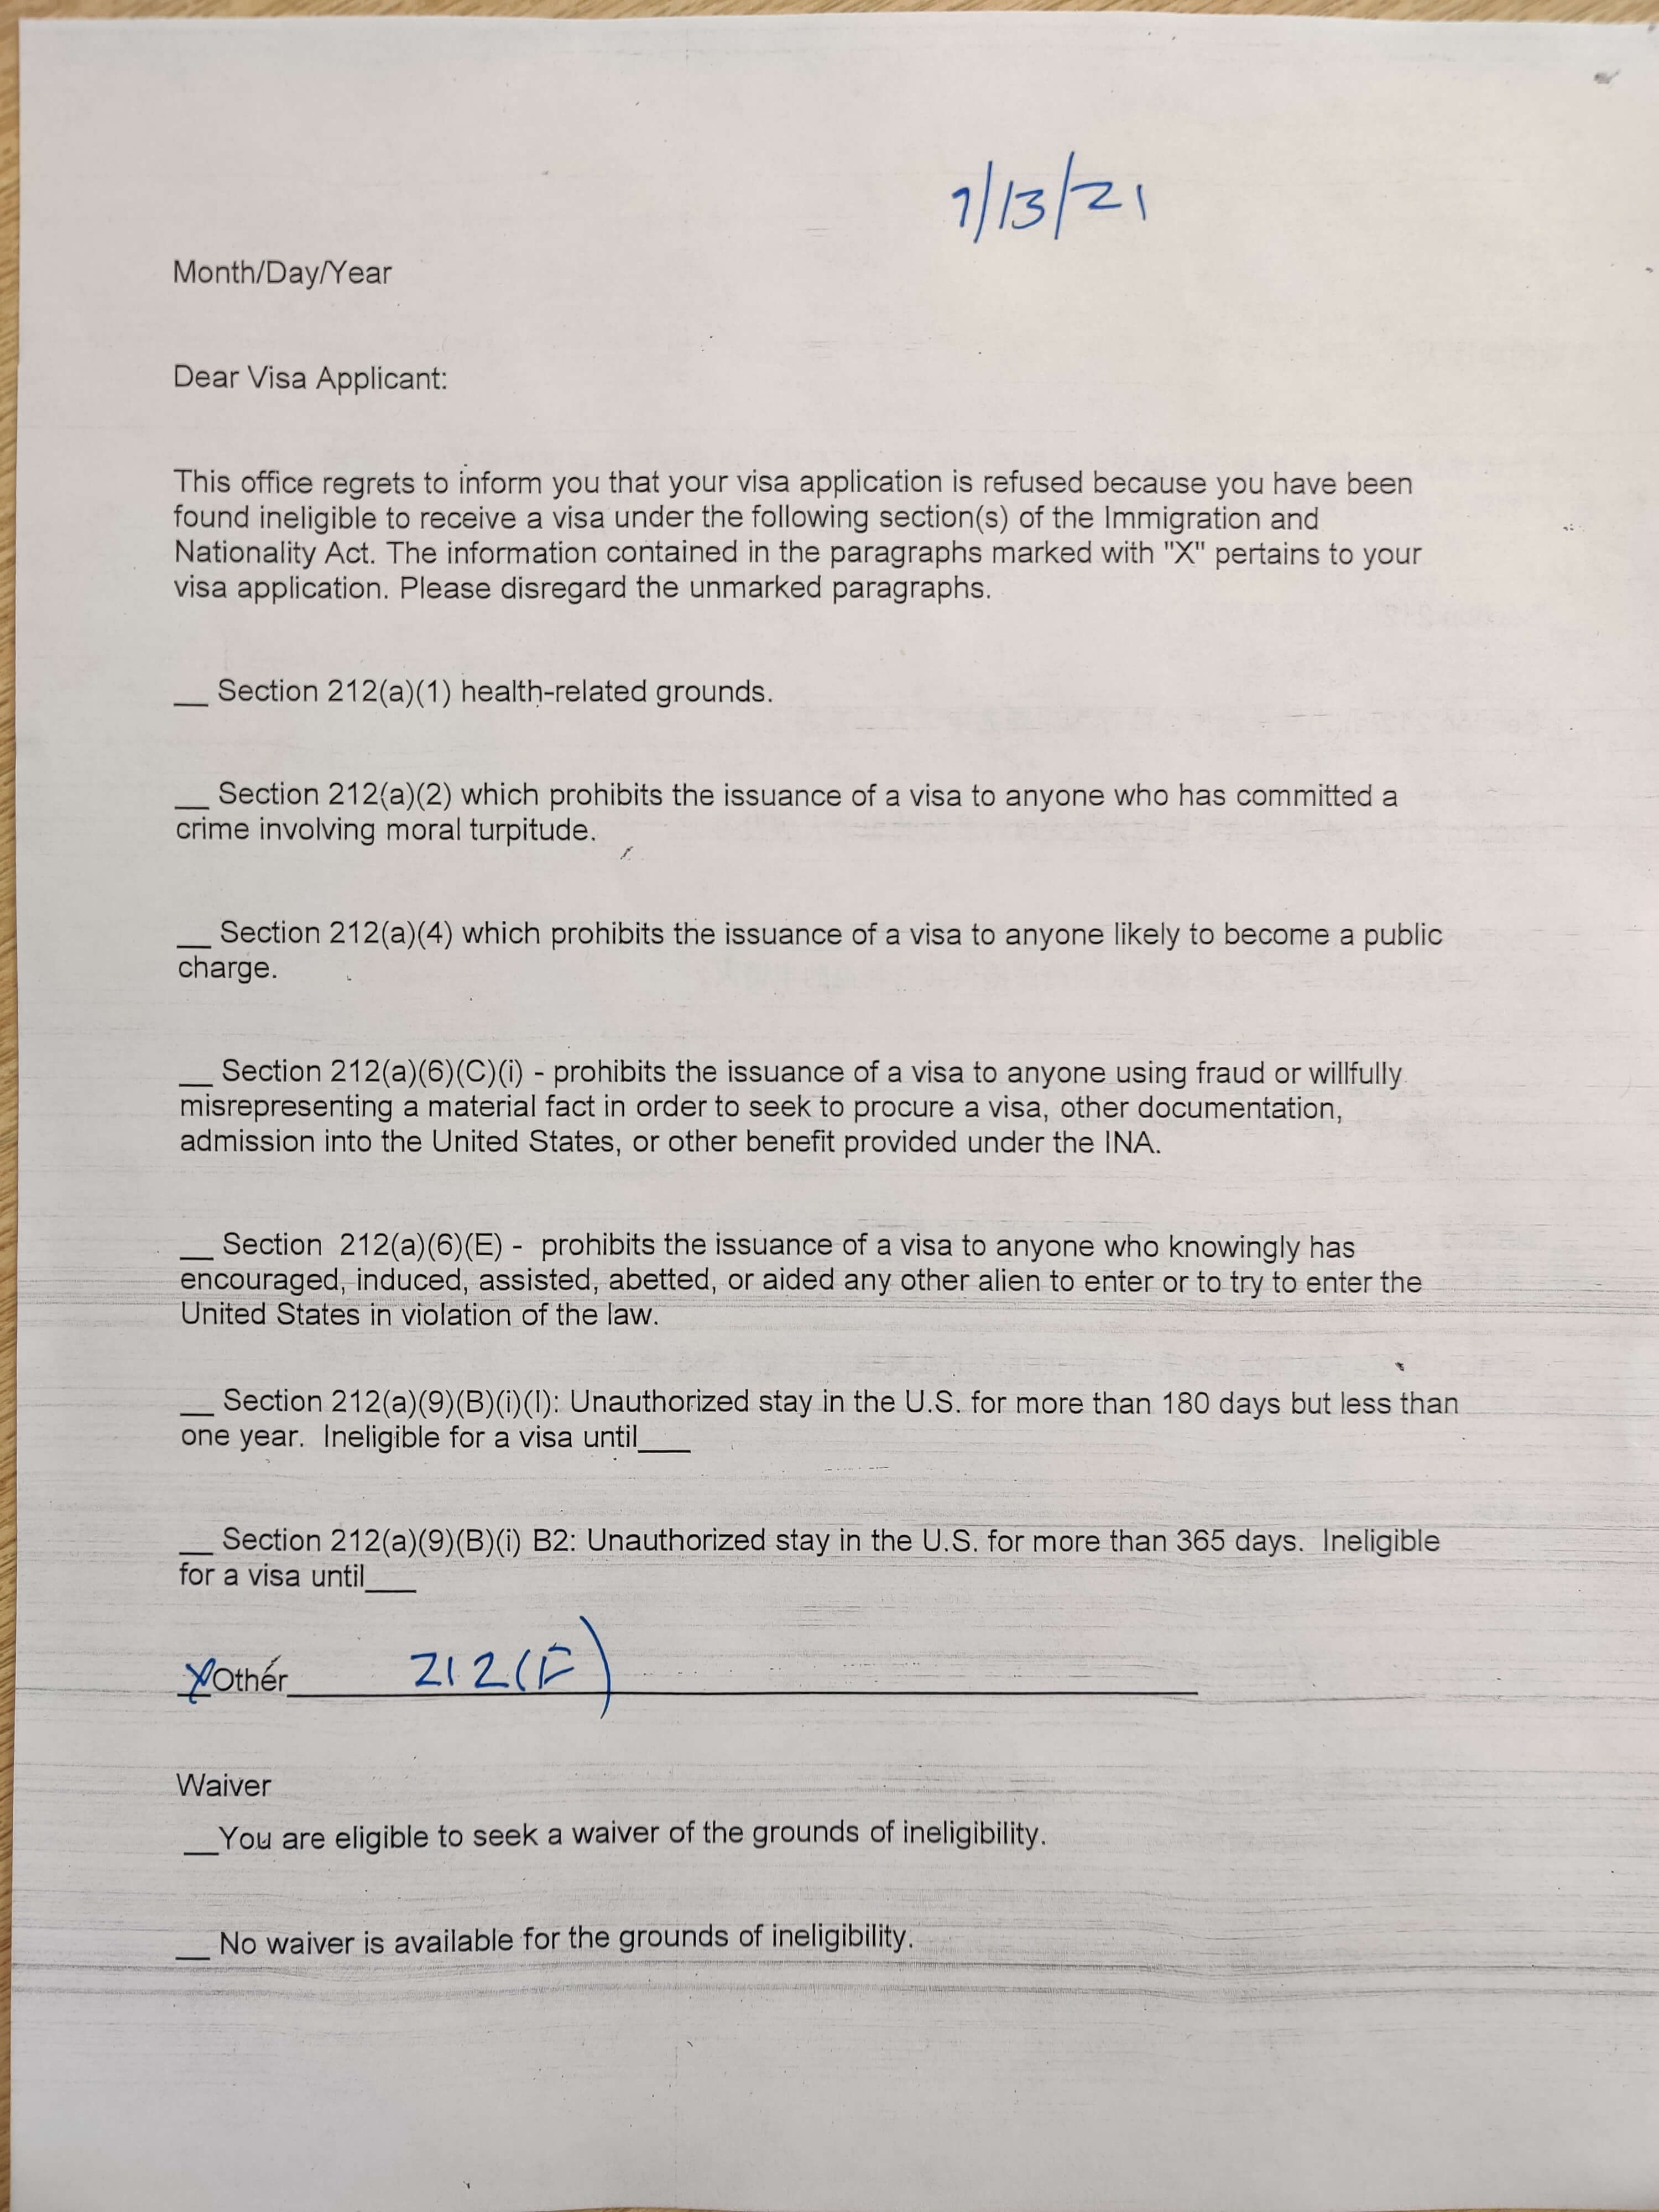 7/13/21
Month/Day/Year
Dear Visa Applicant:
This office regrets to inform you that your visa application is refused because you have been
found ineligible to receive a visa under the following section(s) of the Immigration and
Nationality Act. The information contained in the paragraphs marked with "X" pertains to your
visa application. Please disregard the unmarked paragraphs.
__ Section 212(a)(1) health-related grounds.
__ Section 212(a)(2) which prohibits the issuance of a visa to anyone who has committed a
crime involving moral turpitude.
__ Section 212(a)(4) which prohibits the issuance of a visa to anyone likely to become a public
charge.
__ Section 212(a)(6)(C)(i) - prohibits the issuance of a visa to anyone using fraud or willfully
misrepresenting a material fact in order to seek to procure a visa, other documentation,
admission into the United States, or other benefit provided under the INA.
__ Section 212(a)(6)(E) - prohibits the issuance of a visa to anyone who knowingly has
encouraged, induced, assisted, abetted, or aided any other alien to enter or to try to enter the
United States in violation of the law.
__ Section 212(a)(9)(B)(i)(I): Unauthorized stay in the U.S. for more than 180 days but less than
one year. Ineligible for a visa until___
__ Section 212(a)(9)(B)(i) B2: Unauthorized stay in the U.S. for more than 365 days. Ineligible
for a visa until___
X Other 212(F)
Waiver
__You are eligible to seek a waiver of the grounds of ineligibility.
__ No waiver is available for the grounds of ineligibility.